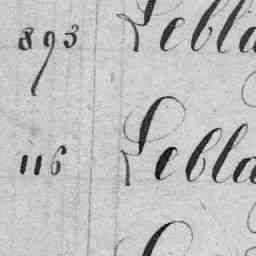 893 Lebla
116 Lebla